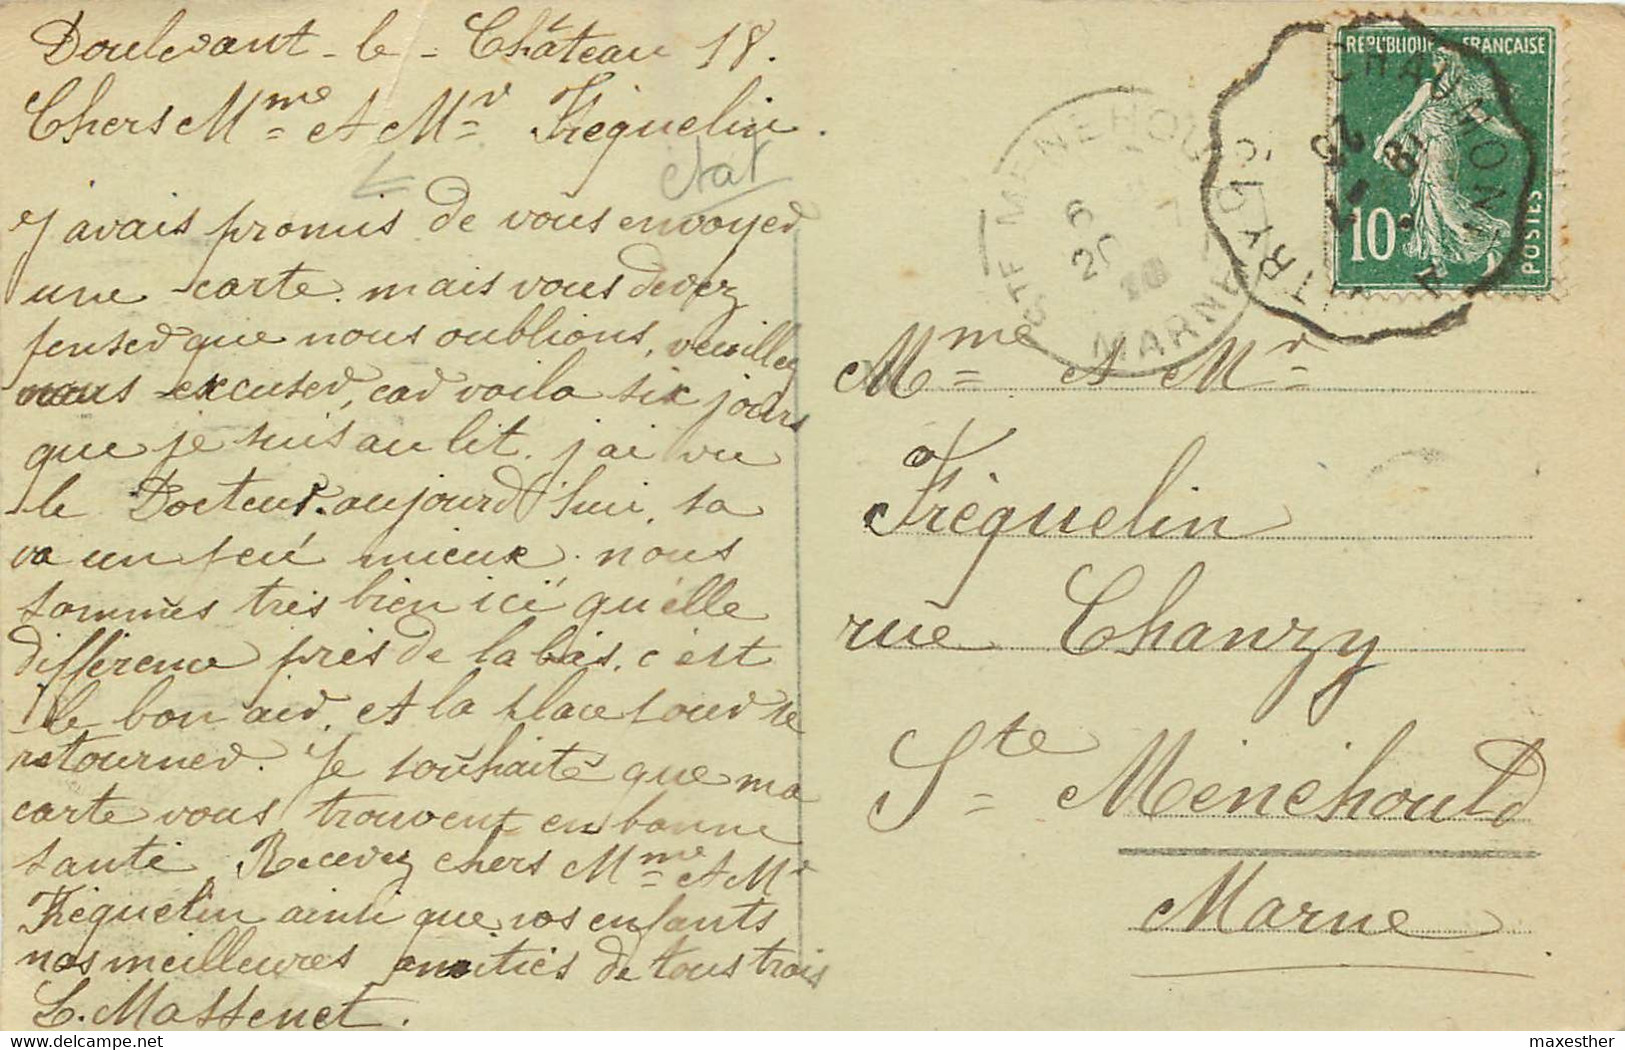 Doulevant-le-Château 18.
Chers Mme et Mr Fréquelin.
etat
j'avais promis de vous envoyer
une carte. mais vous devez
penser que nous oublions, veuillez
nous excuser, car voila six jours
que je suis au lit. j'ai vu
le Docteur. aujourd'hui, sa
va un peu mieux. nous
sommes très bien ici qu'elle
différence près de labas. c'est
le bon air, et la place pour se
retourner. Je souhaite que ma
carte vous trouvent en bonne
santé. Recevez chers Mme et Mr
Fréquelin ainsi que vos enfants
nos meilleures amitiés de tous trois
L. Massenet.
REPUBLIQUE FRANÇAISE
10
POSTES
CHAUMONT A VITRY
STE MENEHOULD
MARNE
6
20
Mme et Mr
Fréquelin
rue Chanzy
Ste Menehould
Marne
Delcampe.net
maxesther